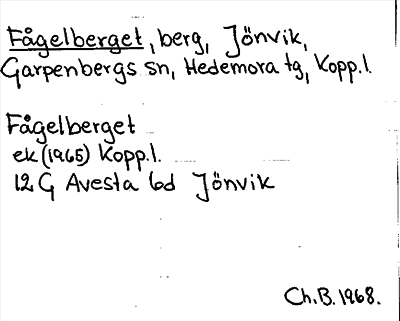 Fågelberget, berg, Jönvik,
Garpenbergs sn, Hedemora tg, Kopp.l.
Fågelberget
ek (1965) Kopp.l.
12 G Avesta 6d Jönvik
Ch.B. 1968.